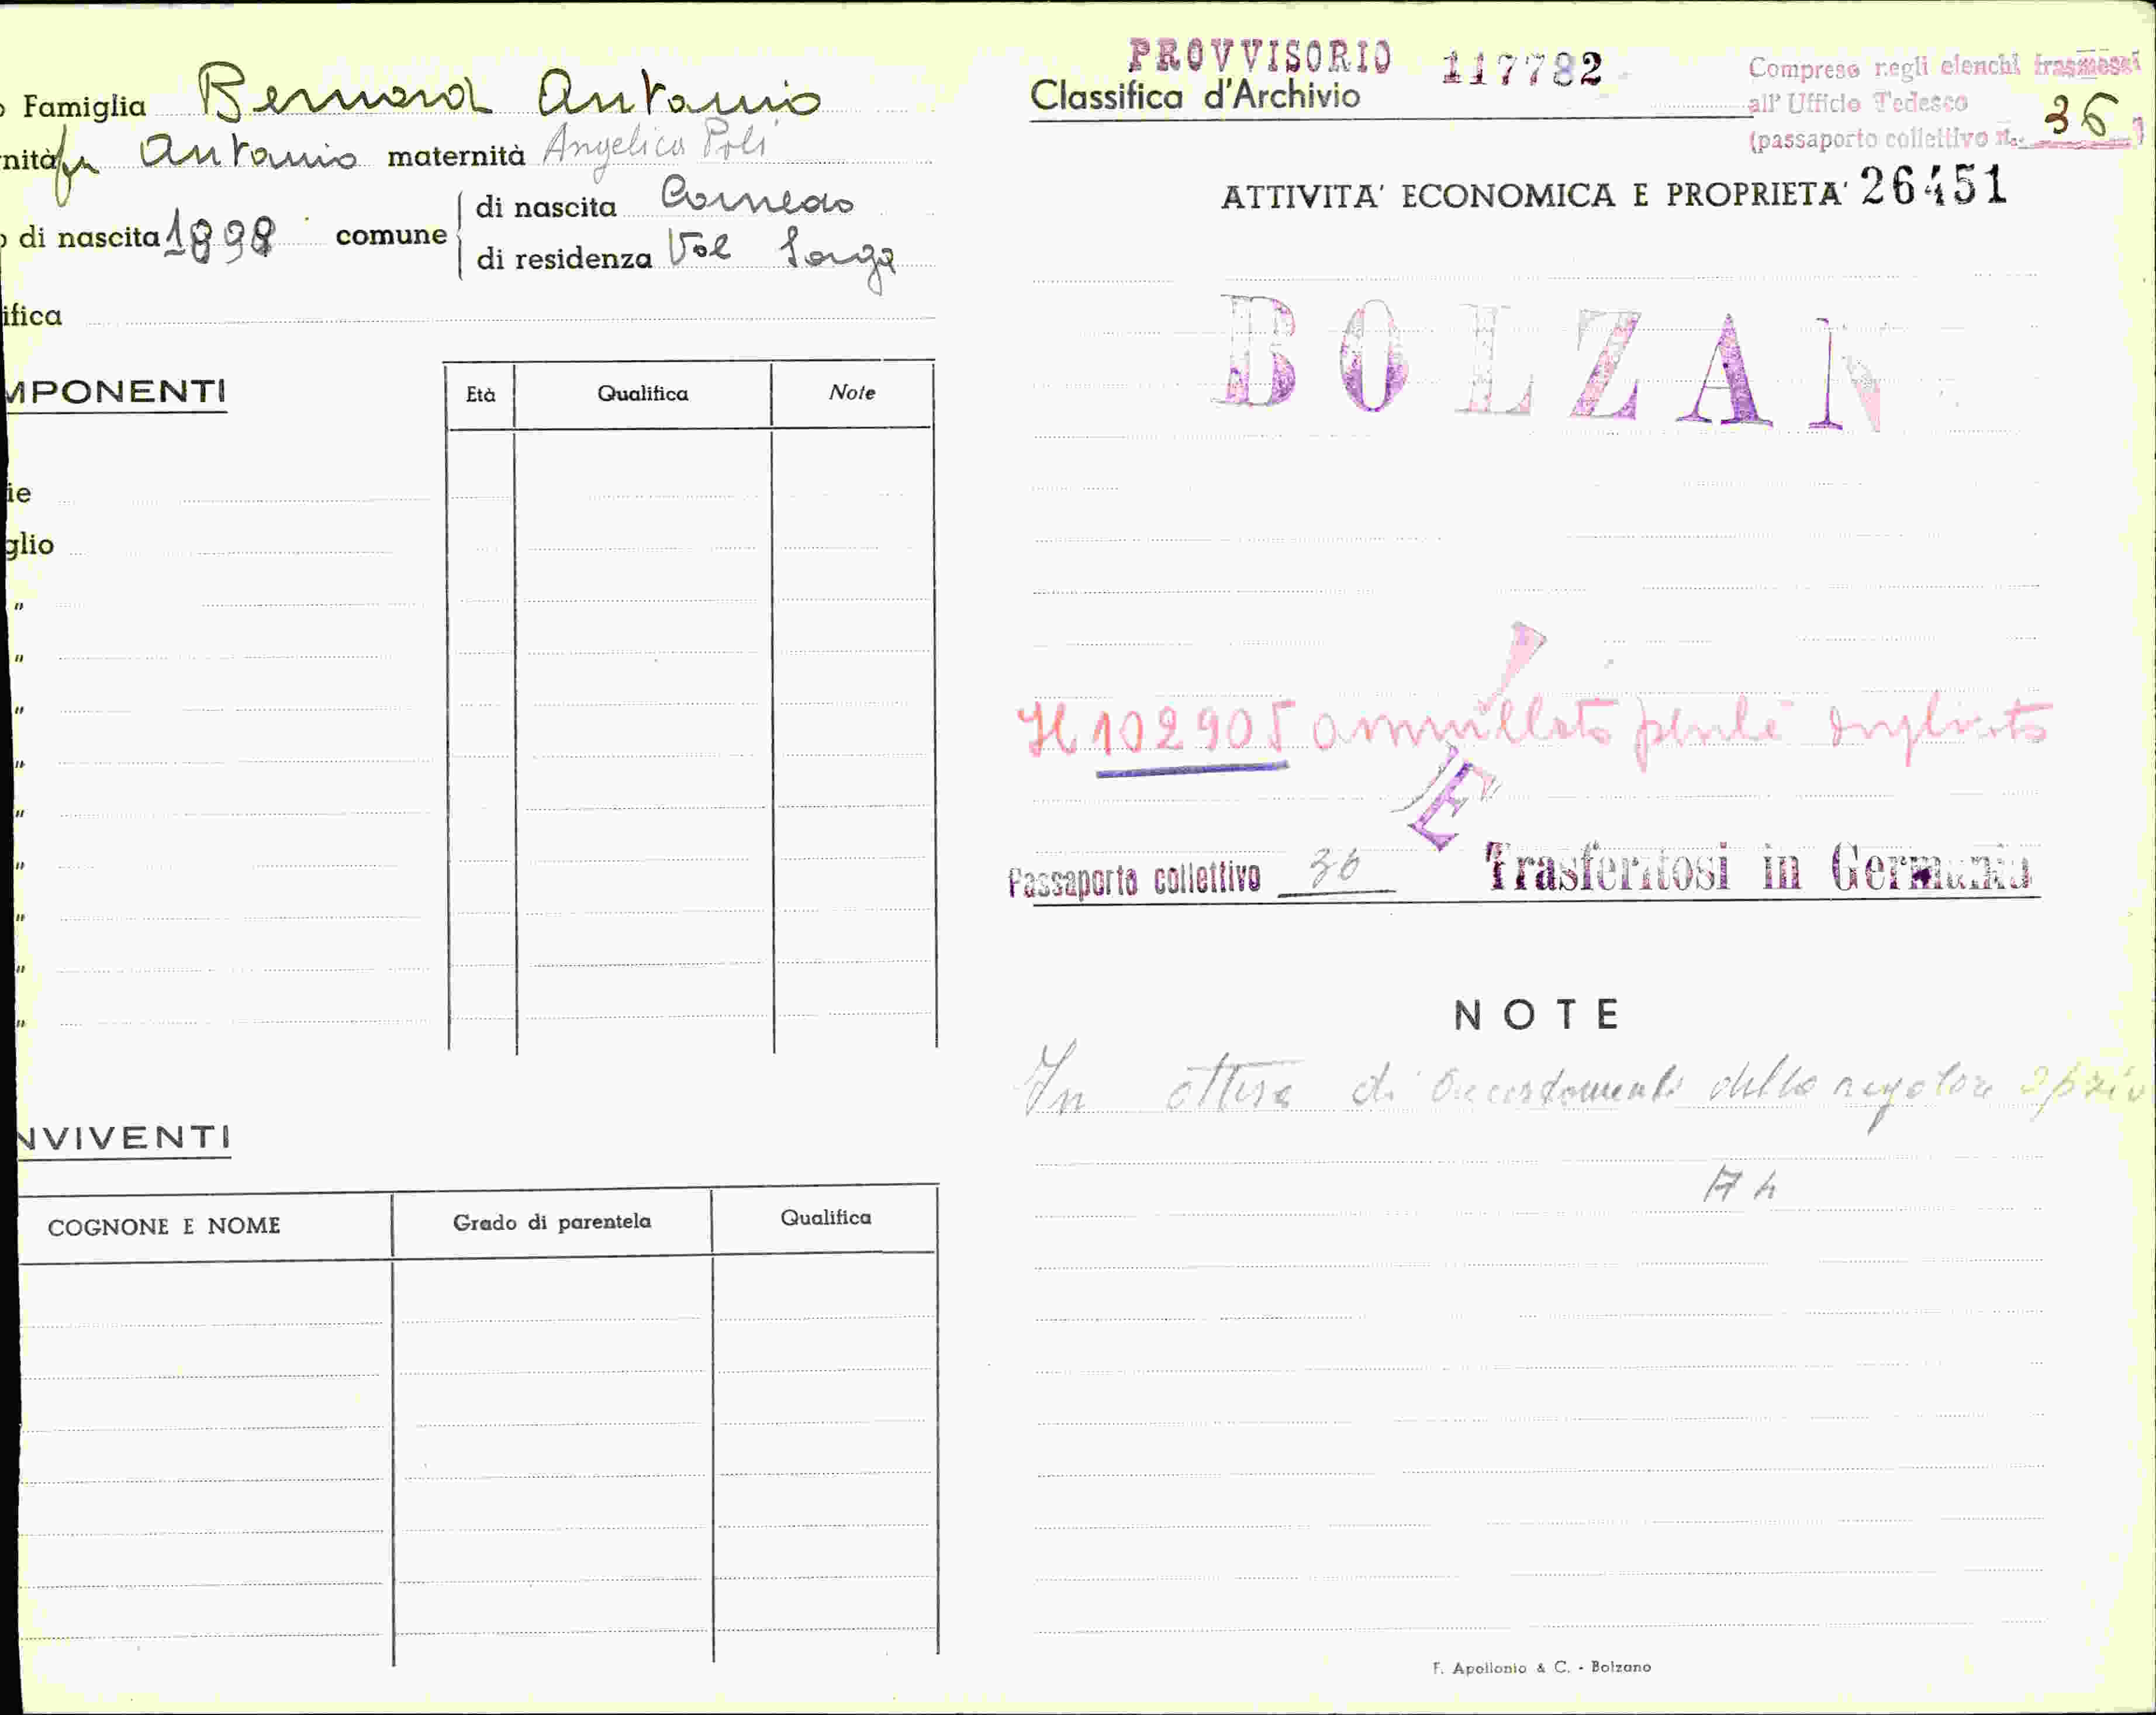 Famiglia Bernard Antonio
nità fu Antonio maternità Angelica Poli
di nascita 1898 comune di nascita Cornedo
di residenza Val Sarga
ifica
MPONENTI
Età Qualifica Note
ie
glio
"
"
"
"
"
"
"
"
"
NVIVENTI
COGNONE E NOME Grado di parentela Qualifica
PROVVISORIO 117782
Classifica d'Archivio
Compreso negli elenchi trasmessi
all' Ufficio Tedesco
(passaporto collettivo n. 36)
ATTIVITA' ECONOMICA E PROPRIETA' 26451
BOLZAN
Il 102905 annullato perchè duplicato
E
Passaporto collettivo 36 Trasferitosi in Germania
NOTE
In attesa di accertamenti della regolare opzio
F. Apollonio & C. - Bolzano